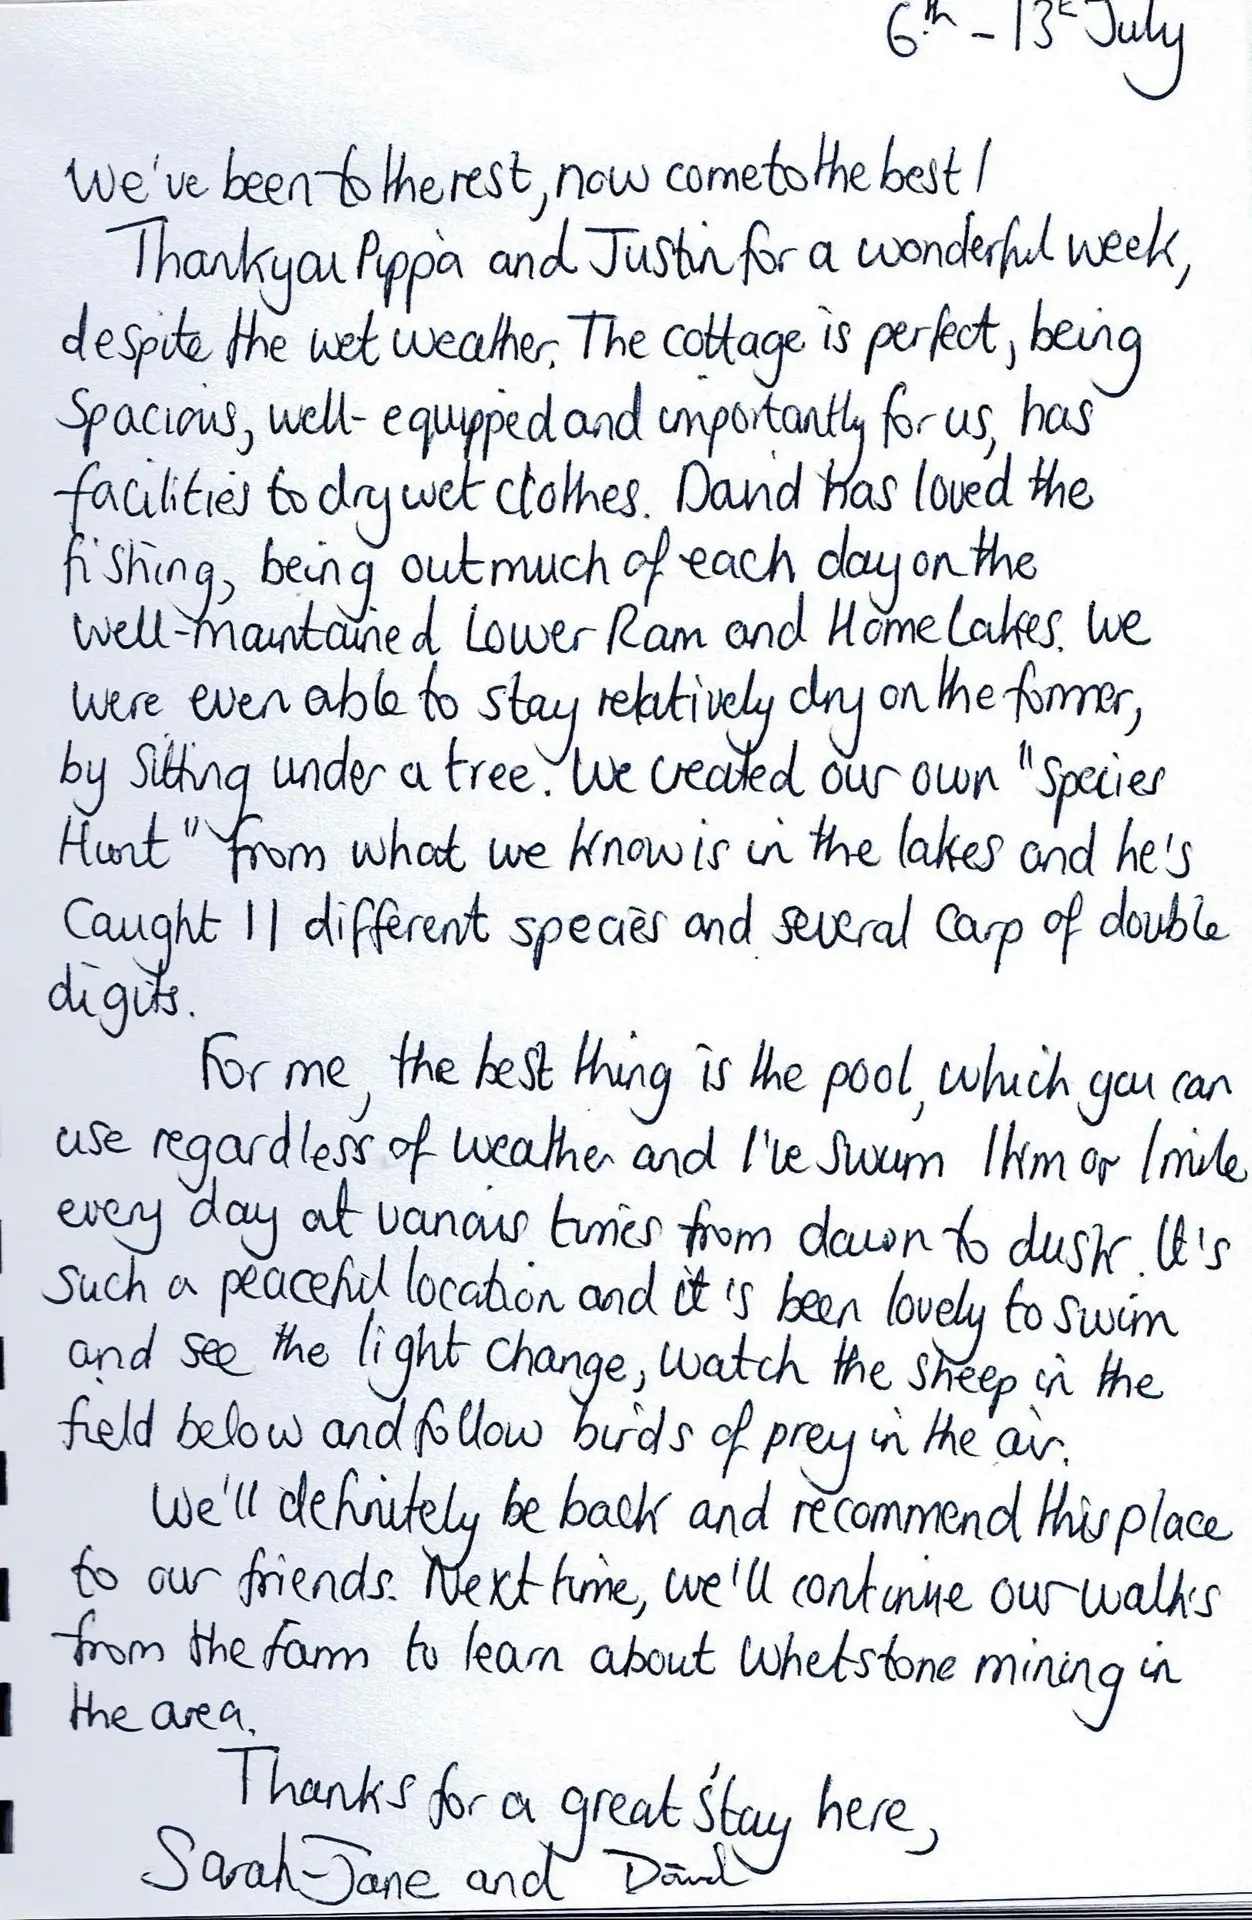 6th - 13th July
We've been to the rest, now come to the best!
Thankyou Pippa and Justin for a wonderful week,
despite the wet weather. The cottage is perfect, being
spacious, well-equipped and importantly for us, has
facilities to dry wet clothes. David has loved the
fishing, being out much of each day on the
well-maintained Lower Ram and Home Lakes. We
were even able to stay relatively dry on the former,
by sitting under a tree. We created our own "Species
Hunt" from what we know is in the lakes and he's
caught 11 different species and several carp of double
digits.
For me, the best thing is the pool, which you can
use regardless of weather and I've swum 1km or 1mile
every day at various times from dawn to dusk. It's
such a peaceful location and it's been lovely to swim
and see the light change, watch the sheep in the
field below and follow birds of prey in the air.
We'll definitely be back and recommend this place
to our friends. Next time, we'll continue our walks
from the farm to learn about whetstone mining in
the area.
Thanks for a great stay here,
Sarah-Jane and David